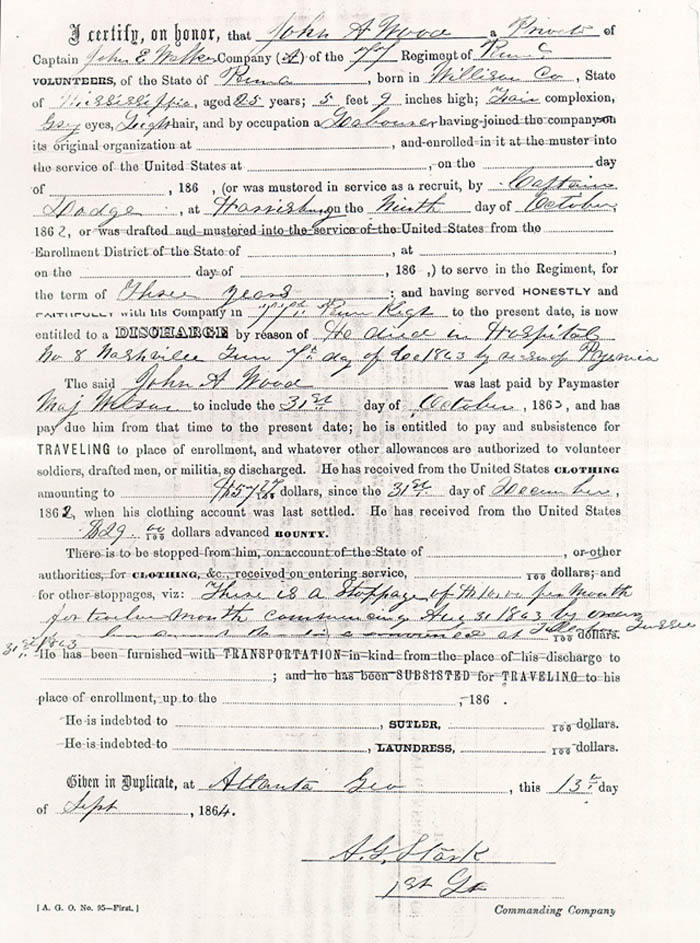 I certify, on honor, that John A Wood a Private of
Captain John E Walker Company (A) of the 77 Regiment of Penna
VOLUNTEERS, of the State of Penna, born in Co, State
of Mississippi, aged 25 years; 5 feet 9 inches high; Fair complexion,
Grey eyes, Light hair, and by occupation a Labourer having joined the company on
its original organization at , and enrolled in it at the muster into
the service of the United States at , on the day
of , 186 , (or was mustered in service as a recruit, by Captain
Dodge, at Harrisburg on the Ninth day of October,
1862, or was drafted and mustered into the service of the United States from the
Enrollment District of the State of , at ,
on the day of , 186 ,) to serve in the Regiment, for
the term of Three years ; and having served HONESTLY and
FAITHFULLY with his Company in 77th Penn Regt to the present date, is now
entitled to a DISCHARGE by reason of He died in Hospital
No 8 Nashville Tenn 7th day of Dec 1863 by reason of Pyemia
The said John A Wood was last paid by Paymaster
Maj to include the 31st day of October, 1863, and has
pay due him from that time to the present date; he is entitled to pay and subsistence for
TRAVELING to place of enrollment, and whatever other allowances are authorized to volunteer
soldiers, drafted men, or militia, so discharged. He has received from the United States CLOTHING
amounting to $57 27/100 dollars, since the 31st day of December,
1862, when his clothing account was last settled. He has received from the United States
$29 00/100 dollars advanced BOUNTY.
There is to be stopped from him, on account of the State of , or other
authorities, for CLOTHING, &c., received on entering service, /100 dollars; and
for other stoppages, viz: There is a Stoppage of $10.00 per Month
for twelve Month commencing Aug 31 1863 by
at /100 dollars.
31st 1863
He has been furnished with TRANSPORTATION in kind from the place of his discharge to
; and he has been SUBSISTED for TRAVELING to his
place of enrollment, up to the , 186 .
He is indebted to , SUTLER, /100 dollars.
He is indebted to , LAUNDRESS, /100 dollars.
Given in Duplicate, at Atlanta Geo, this 13th day
of Sept, 1864.
A. G. Stark
1st Lt
[A. G. O. No. 95—First.] Commanding Company